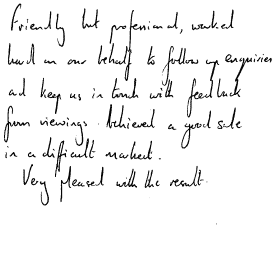 Friendly but professional, worked
hard on our behalf to follow up enquiries
and keep us in touch with feedback
from viewings. Achieved a good sale
in a difficult market.
Very pleased with the result.